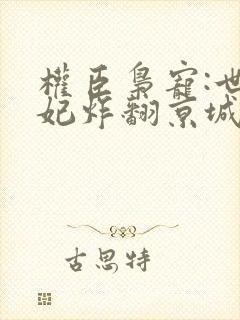 權臣梟寵:世
妃炸翻京城
古思特